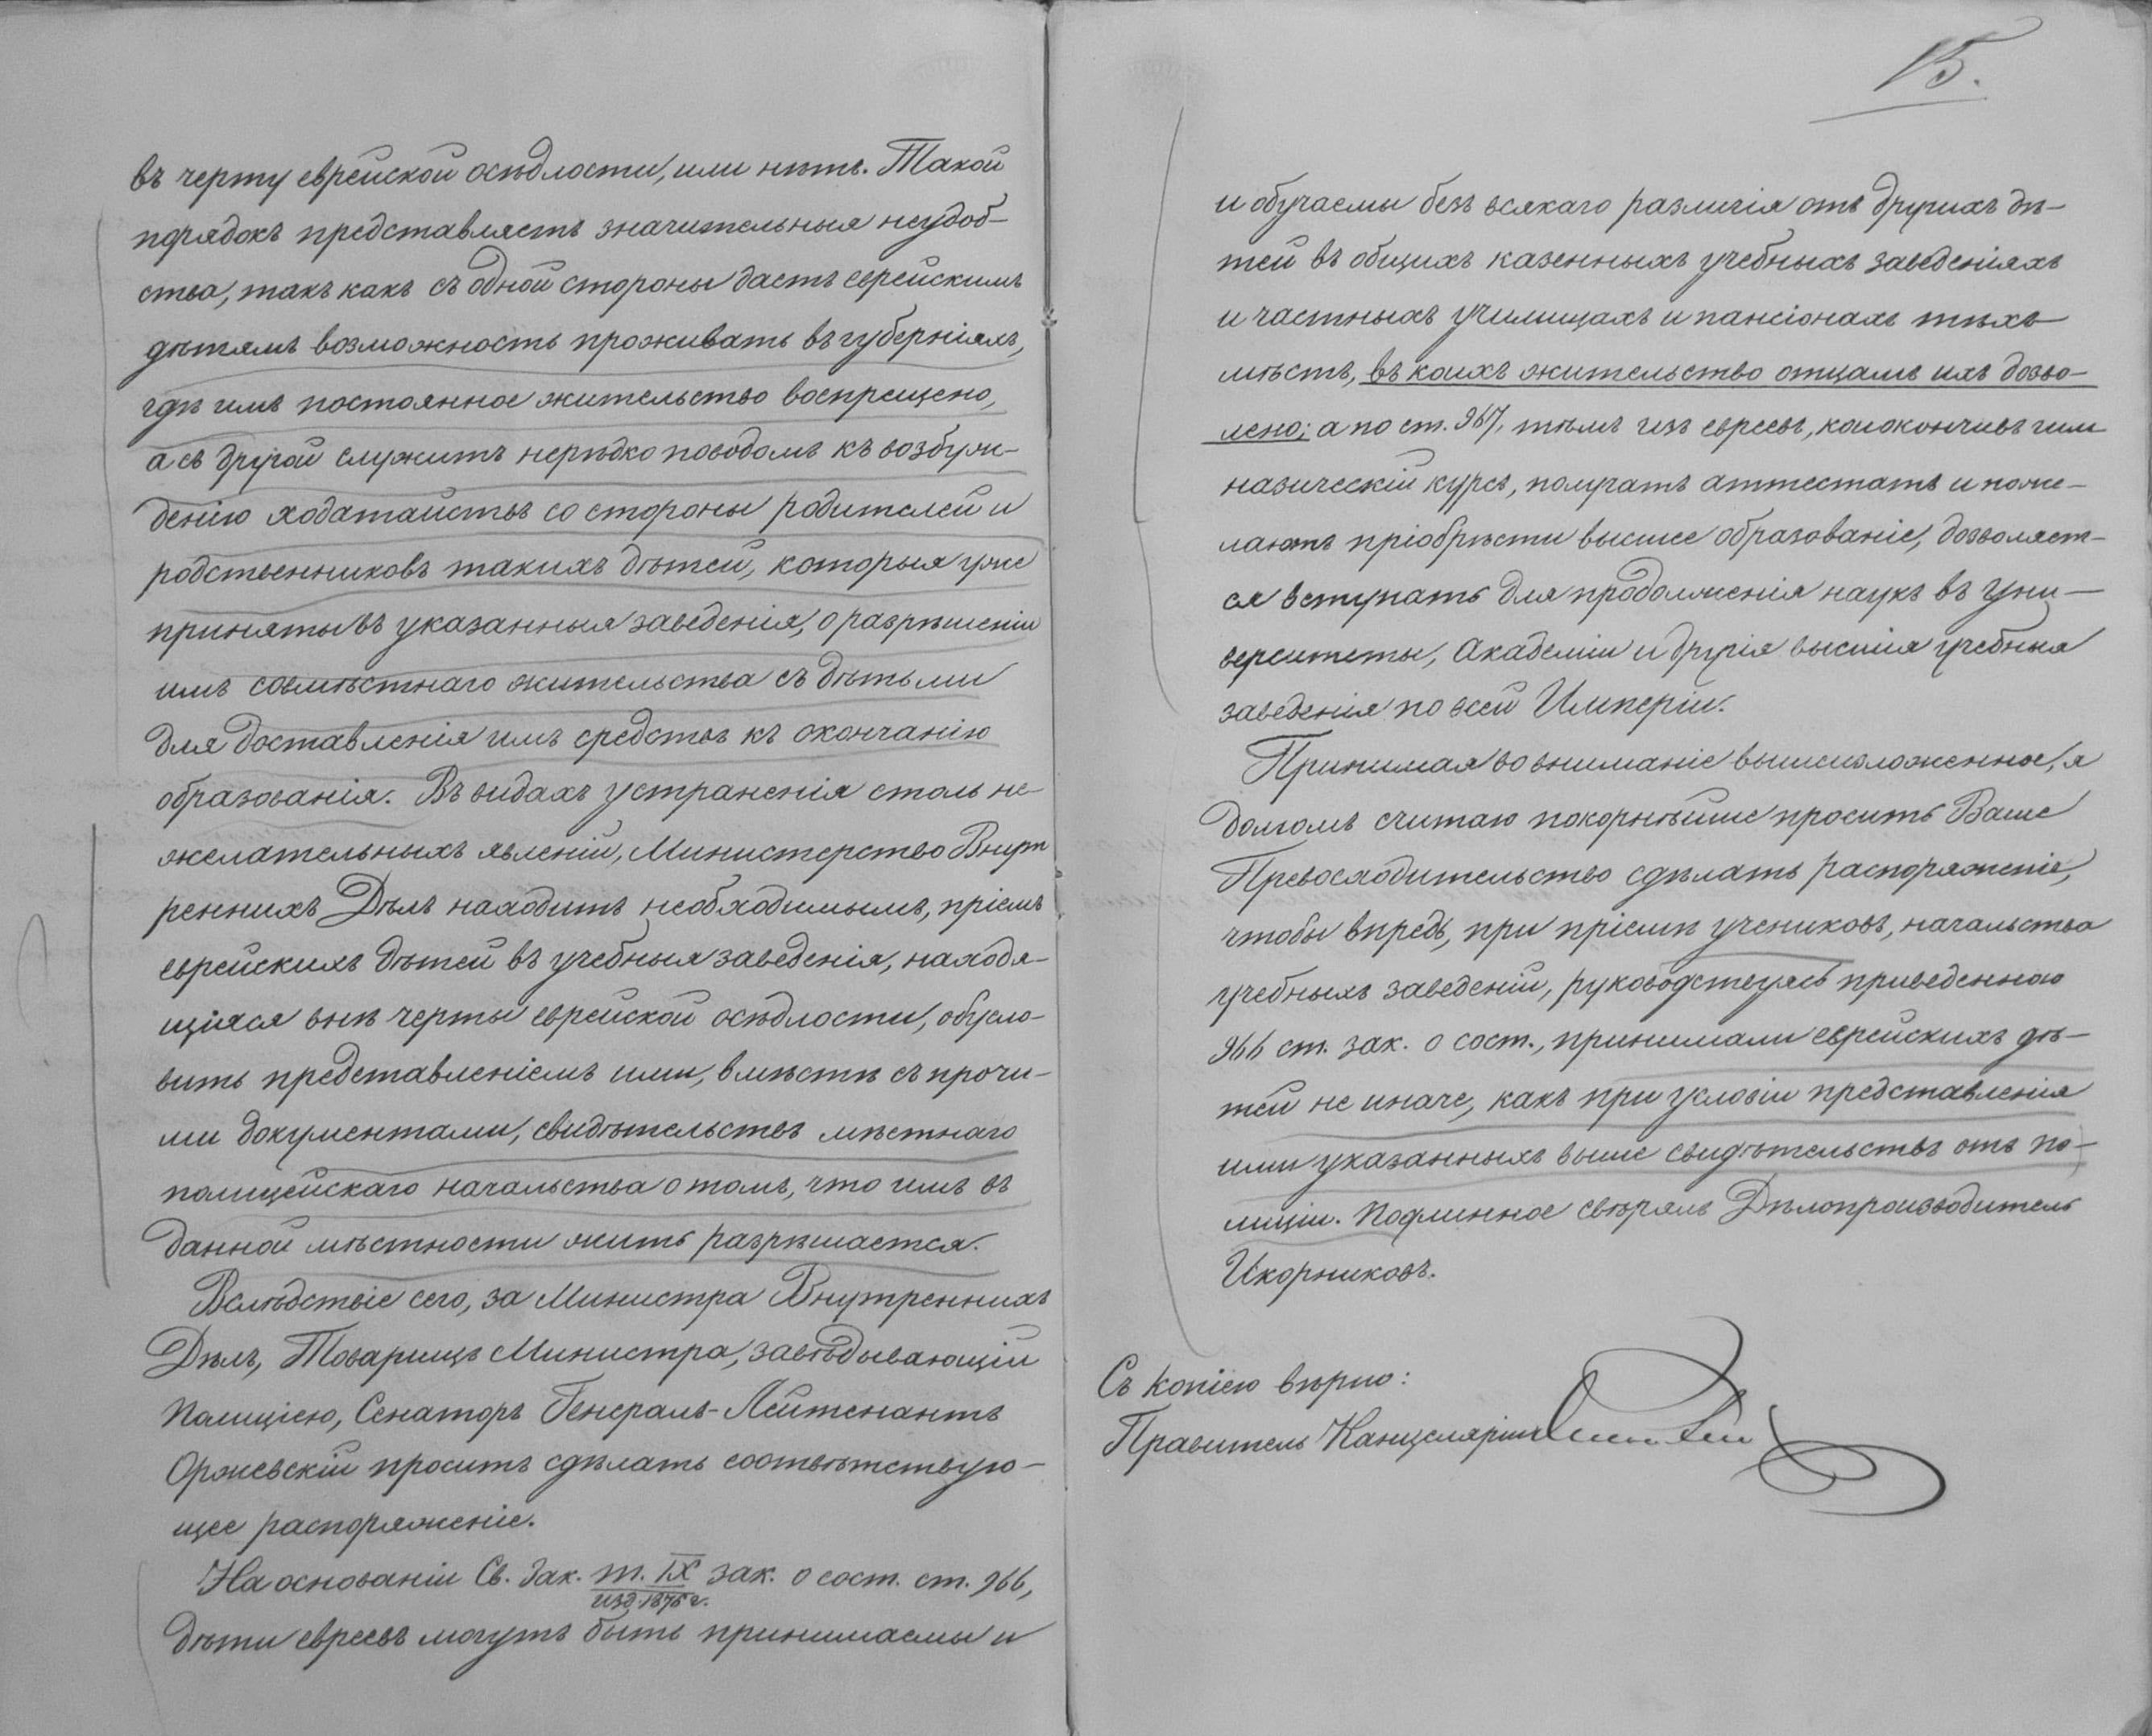 въ черту еврейской осѣдлости, или нѣтъ. Такой
порядокъ представляетъ значительныя неудоб-
ства, такъ какъ съ одной стороны даетъ еврейскимъ
дѣтямъ возможность проживать въ губерніяхъ,
гдѣ имъ постоянное жительство воспрещено,
а съ другой служитъ нерѣдко поводомъ къ возбуж-
денію ходатайствъ со стороны родителей и
родственниковъ такихъ дѣтей, которыя уже
приняты въ указанныя заведенія, о разрѣшеніи
имъ совмѣстнаго жительства съ дѣтьми
для доставленія имъ средствъ къ окончанію
образованія. Въ видахъ устраненія столь не-
желательныхъ явленій, Министерство Внут
реннихъ Дѣлъ находитъ необходимымъ, пріемъ
еврейскихъ дѣтей въ учебныя заведенія, находя-
щіяся внѣ черты еврейской осѣдлости, обусло-
вить представленіемъ ими, вмѣстѣ съ прочи-
ми документами, свидѣтельствъ мѣстнаго
полицейскаго начальства о томъ, что имъ въ
данной мѣстности жить разрѣшается.
Вслѣдствіе сего, за Министра Внутреннихъ
Дѣлъ, Товарищъ Министра, завѣдывающій
Полиціею, Сенаторъ Генералъ-Лейтенантъ
Оржевскій проситъ сдѣлать соотвѣтствую-
щее распоряженіе.
На основаніи Св. Зак. т. IX зак. о сост. ст. 966,
изд. 1876 г.
дѣти евреевъ могутъ быть принимаемы и
15.
и обучаемы безъ всякаго различія отъ другихъ дѣ-
тей въ общихъ казенныхъ учебныхъ заведеніяхъ
и частныхъ училищахъ и пансіонахъ тѣхъ
мѣстъ, въ коихъ жительство отцамъ ихъ дозво-
лено; а по ст. 967, тѣмъ изъ евреевъ, кои окончивъ гим
назическій курсъ, получатъ аттестатъ и поже-
лаютъ пріобрѣсти высшее образованіе, дозволяет-
ся вступать для продолженія наукъ въ уни-
верситеты, Академіи и другія высшія учебныя
заведенія по всей Имперіи.
Принимая во вниманіе вышеизложенное, я
долгомъ считаю покорнѣйше просить Ваше
Превосходительство сдѣлать распоряженіе,
чтобы впредь, при пріемѣ учениковъ, начальства
учебныхъ заведеній, руководствуясь приведенною
966 ст. зак. о сост., принимали еврейскихъ дѣ-
тей не иначе, какъ при условіи представленія
ими указанныхъ выше свидѣтельствъ отъ по-
лиціи. Подлинное свѣрялъ Дѣлопроизводитель
Икорниковъ.
Съ копіею вѣрно:
Правитель Канцеляріи